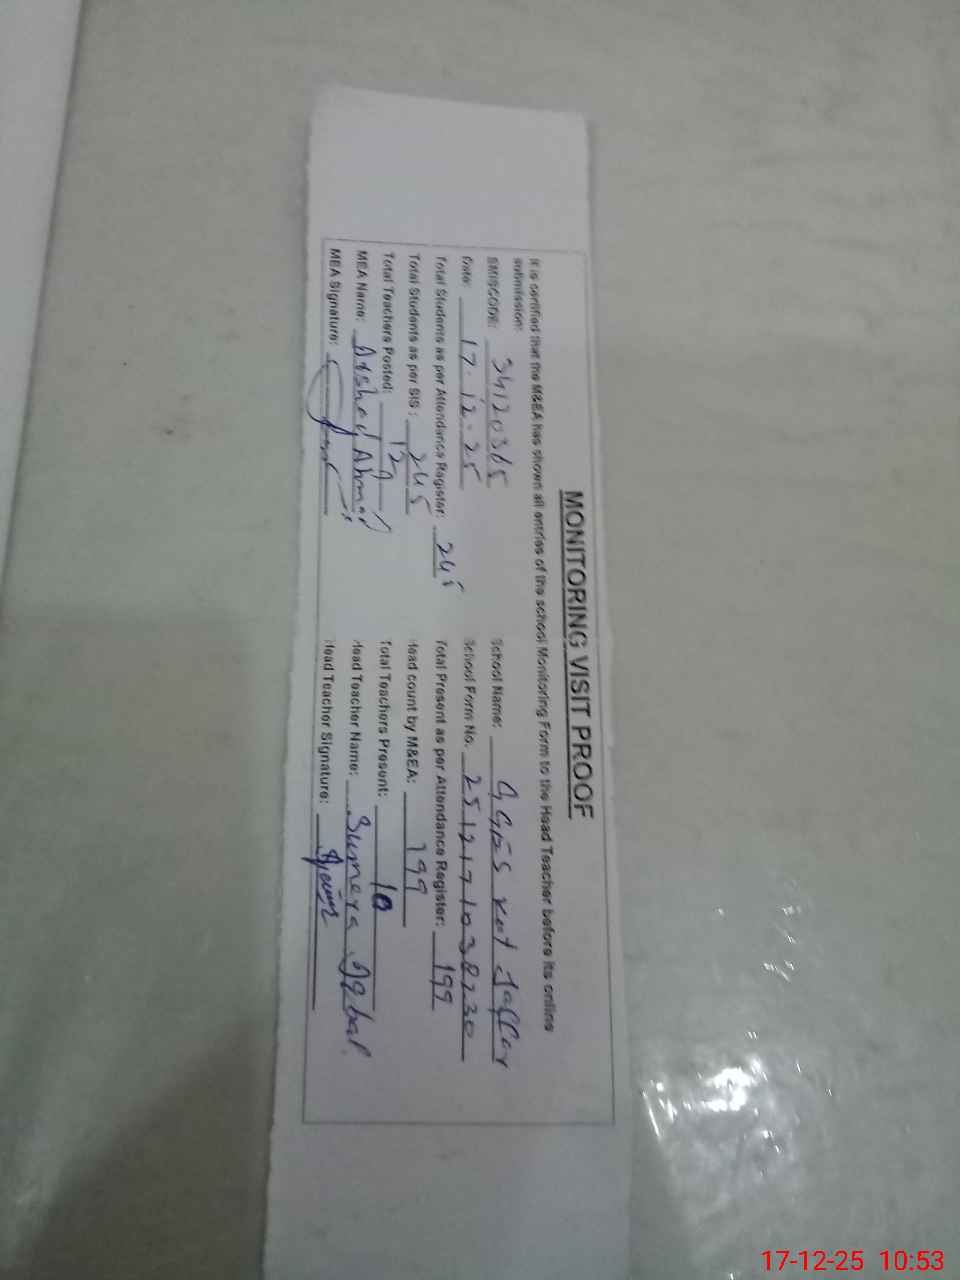 MONITORING VISIT PROOF
It is certified that the M&EA has shown all entries of the school Monitoring Form to the Head Teacher before its online
submission:
EMISCODE: 34120365 School Name: GGES Kot Jaffar
Date: 17.12.25 School Form No. 2512171038230
Total Students as per Attendance Register: 245 Total Present as per Attendance Register: 199
Total Students as per SIS: 245 Head count by M&EA: 199
Total Teachers Posted: 12 Total Teachers Present: 10
MEA Name: Arshad Ahmad Head Teacher Name: Sumera Iqbal
MEA Signature: Head Teacher Signature:
17-12-25 10:53